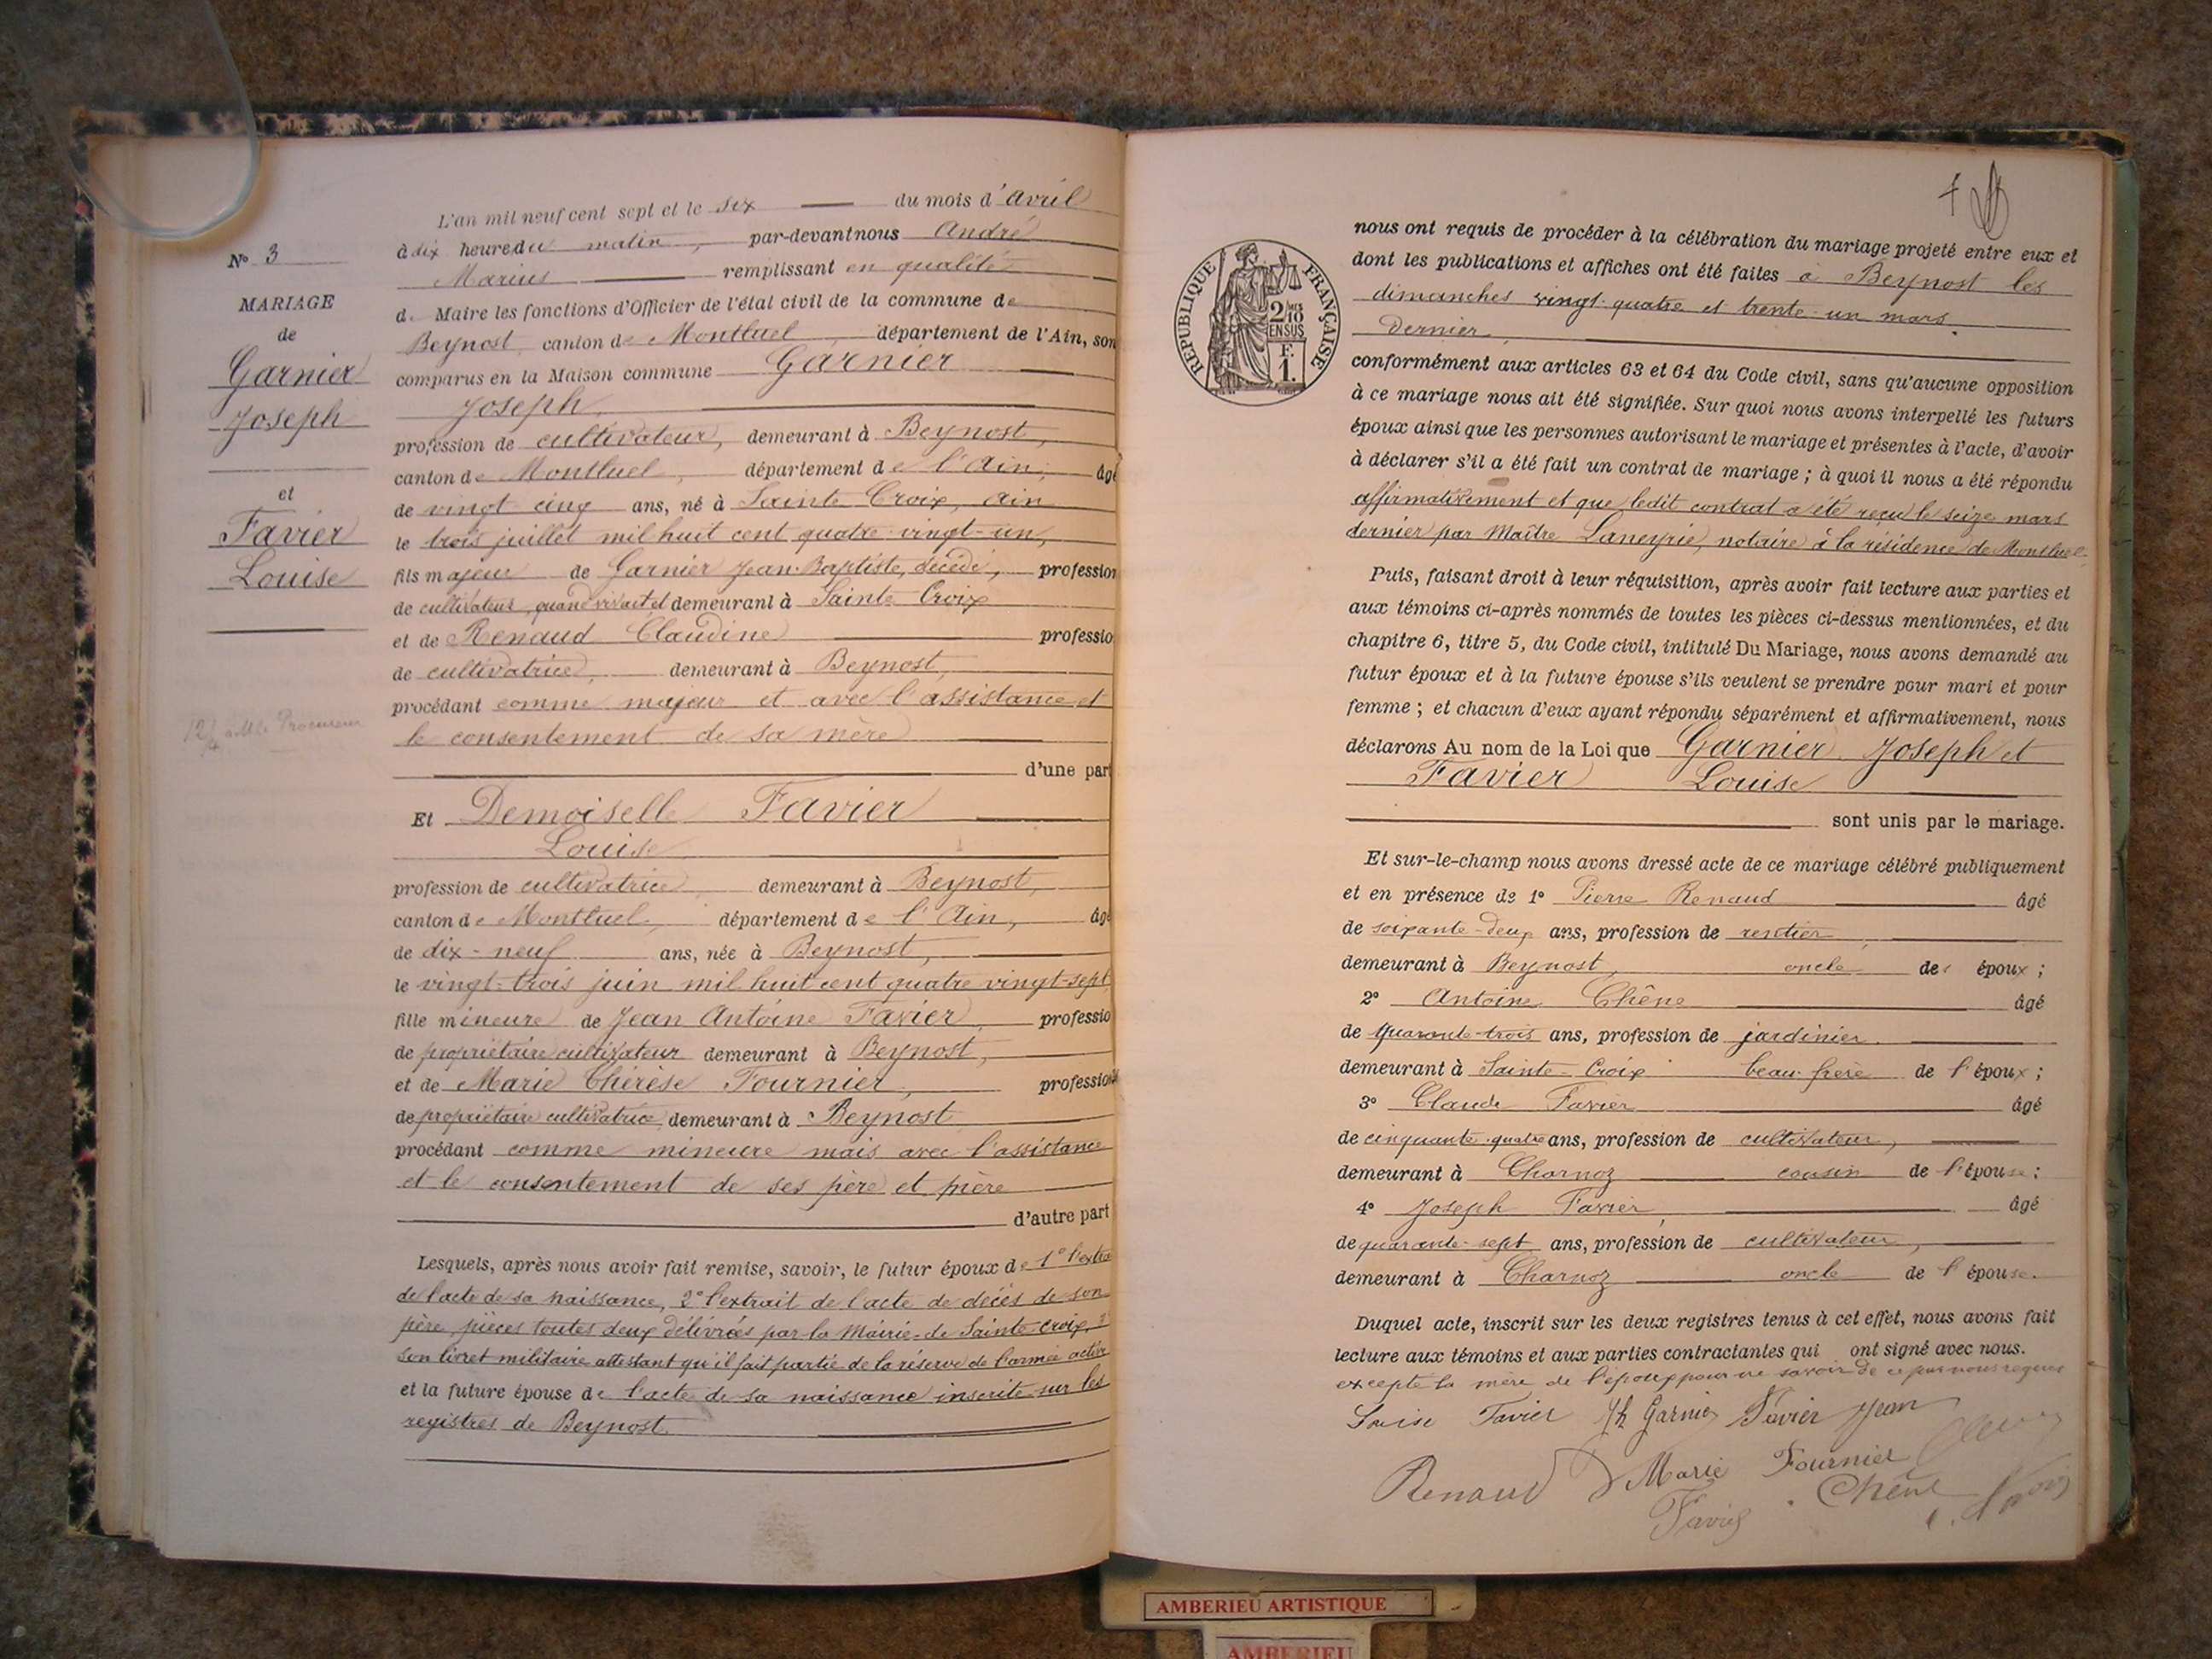 N° 3
MARIAGE
de
Garnier
Joseph
et
Favier
Louise
L'an mil neuf cent sept et le six du mois d'avril
à dix heures du matin, par-devant nous André
Marius remplissant en qualité
de Maire les fonctions d'Officier de l'état civil de la commune de
Beynost canton de Montluel, département de l'Ain, son
comparus en la Maison commune Garnier
Joseph,
profession de cultivateur, demeurant à Beynost,
canton de Montluel, département de l'Ain, âgé
de vingt cinq ans, né à Sainte Croix, Ain
le trois juillet mil huit cent quatre-vingt-un,
fils majeur de Garnier Jean-Baptiste, décédé, profession
de cultivateur, quand vivait et demeurant à Sainte Croix
et de Renaud Claudine professio
de cultivatrice, demeurant à Beynost,
procédant comme majeur et avec l'assistance et
le consentement de sa mère
d'une part
Et Demoiselle Favier
Louise
profession de cultivatrice, demeurant à Beynost,
canton de Montluel, département de l'Ain, âgé
de dix-neuf ans, née à Beynost,
le vingt-trois juin mil huit cent quatre vingt-sept,
fille mineure de Jean Antoine Favier, professio
de propriétaire cultivateur demeurant à Beynost,
et de Marie Thérèse Fournier, profession
de propriétaire cultivatrice, demeurant à Beynost
procédant comme mineure mais avec l'assistance
et le consentement de ses père et mère
d'autre part
Lesquels, après nous avoir fait remise, savoir, le futur époux de 1° l'extra
de l'acte de sa naissance, 2° l'extrait de l'acte de décès de son
père, pièces toutes deux délivrées par la Mairie de Sainte-Croix, 3°
son livret militaire attestant qu'il fait partie de la réserve de l'armée active
et la future épouse de l'acte de sa naissance inscrite sur les
registres de Beynost.
RÉPUBLIQUE FRANÇAISE
2/10 EN SUS
F.
1.
nous ont requis de procéder à la célébration du mariage projeté entre eux et
dont les publications et affiches ont été faites à Beynost les
dimanches vingt-quatre et trente-un mars
dernier,
conformément aux articles 63 et 64 du Code civil, sans qu'aucune opposition
à ce mariage nous ait été signifiée. Sur quoi nous avons interpellé les futurs
époux ainsi que les personnes autorisant le mariage et présentes à l'acte, d'avoir
à déclarer s'il a été fait un contrat de mariage ; à quoi il nous a été répondu
affirmativement et que ledit contrat a été reçu le seize mars
dernier par Maître Laneyrie, notaire à la résidence de Montluel.
Puis, faisant droit à leur réquisition, après avoir fait lecture aux parties et
aux témoins ci-après nommés de toutes les pièces ci-dessus mentionnées, et du
chapitre 6, titre 5, du Code civil, intitulé Du Mariage, nous avons demandé au
futur époux et à la future épouse s'ils veulent se prendre pour mari et pour
femme ; et chacun d'eux ayant répondu séparément et affirmativement, nous
déclarons Au nom de la Loi que Garnier Joseph et
Favier Louise
sont unis par le mariage.
Et sur-le-champ nous avons dressé acte de ce mariage célébré publiquement
et en présence de 1° Pierre Renaud âgé
de soixante-deux ans, profession de rentier,
demeurant à Beynost, oncle de époux ;
2° Antoine Chêne âgé
de quarante-trois ans, profession de jardinier.
demeurant à Sainte-Croix beau-frère de l'époux ;
3° Claude Favier âgé
de cinquante-quatre ans, profession de cultivateur,
demeurant à Charnoz cousin de l'épouse ;
4° Joseph Favier, âgé
de quarante-sept ans, profession de cultivateur,
demeurant à Charnoz oncle de l'épouse.
Duquel acte, inscrit sur les deux registres tenus à cet effet, nous avons fait
lecture aux témoins et aux parties contractantes qui ont signé avec nous.
excepté la mère de l'époux pour ne savoir de ce par nous requise
Louise Favier Jh Garnier Favier Jean
Renaud Marie Fournier
Favier Chêne
AMBERIEU ARTISTIQUE
AMBERIEU